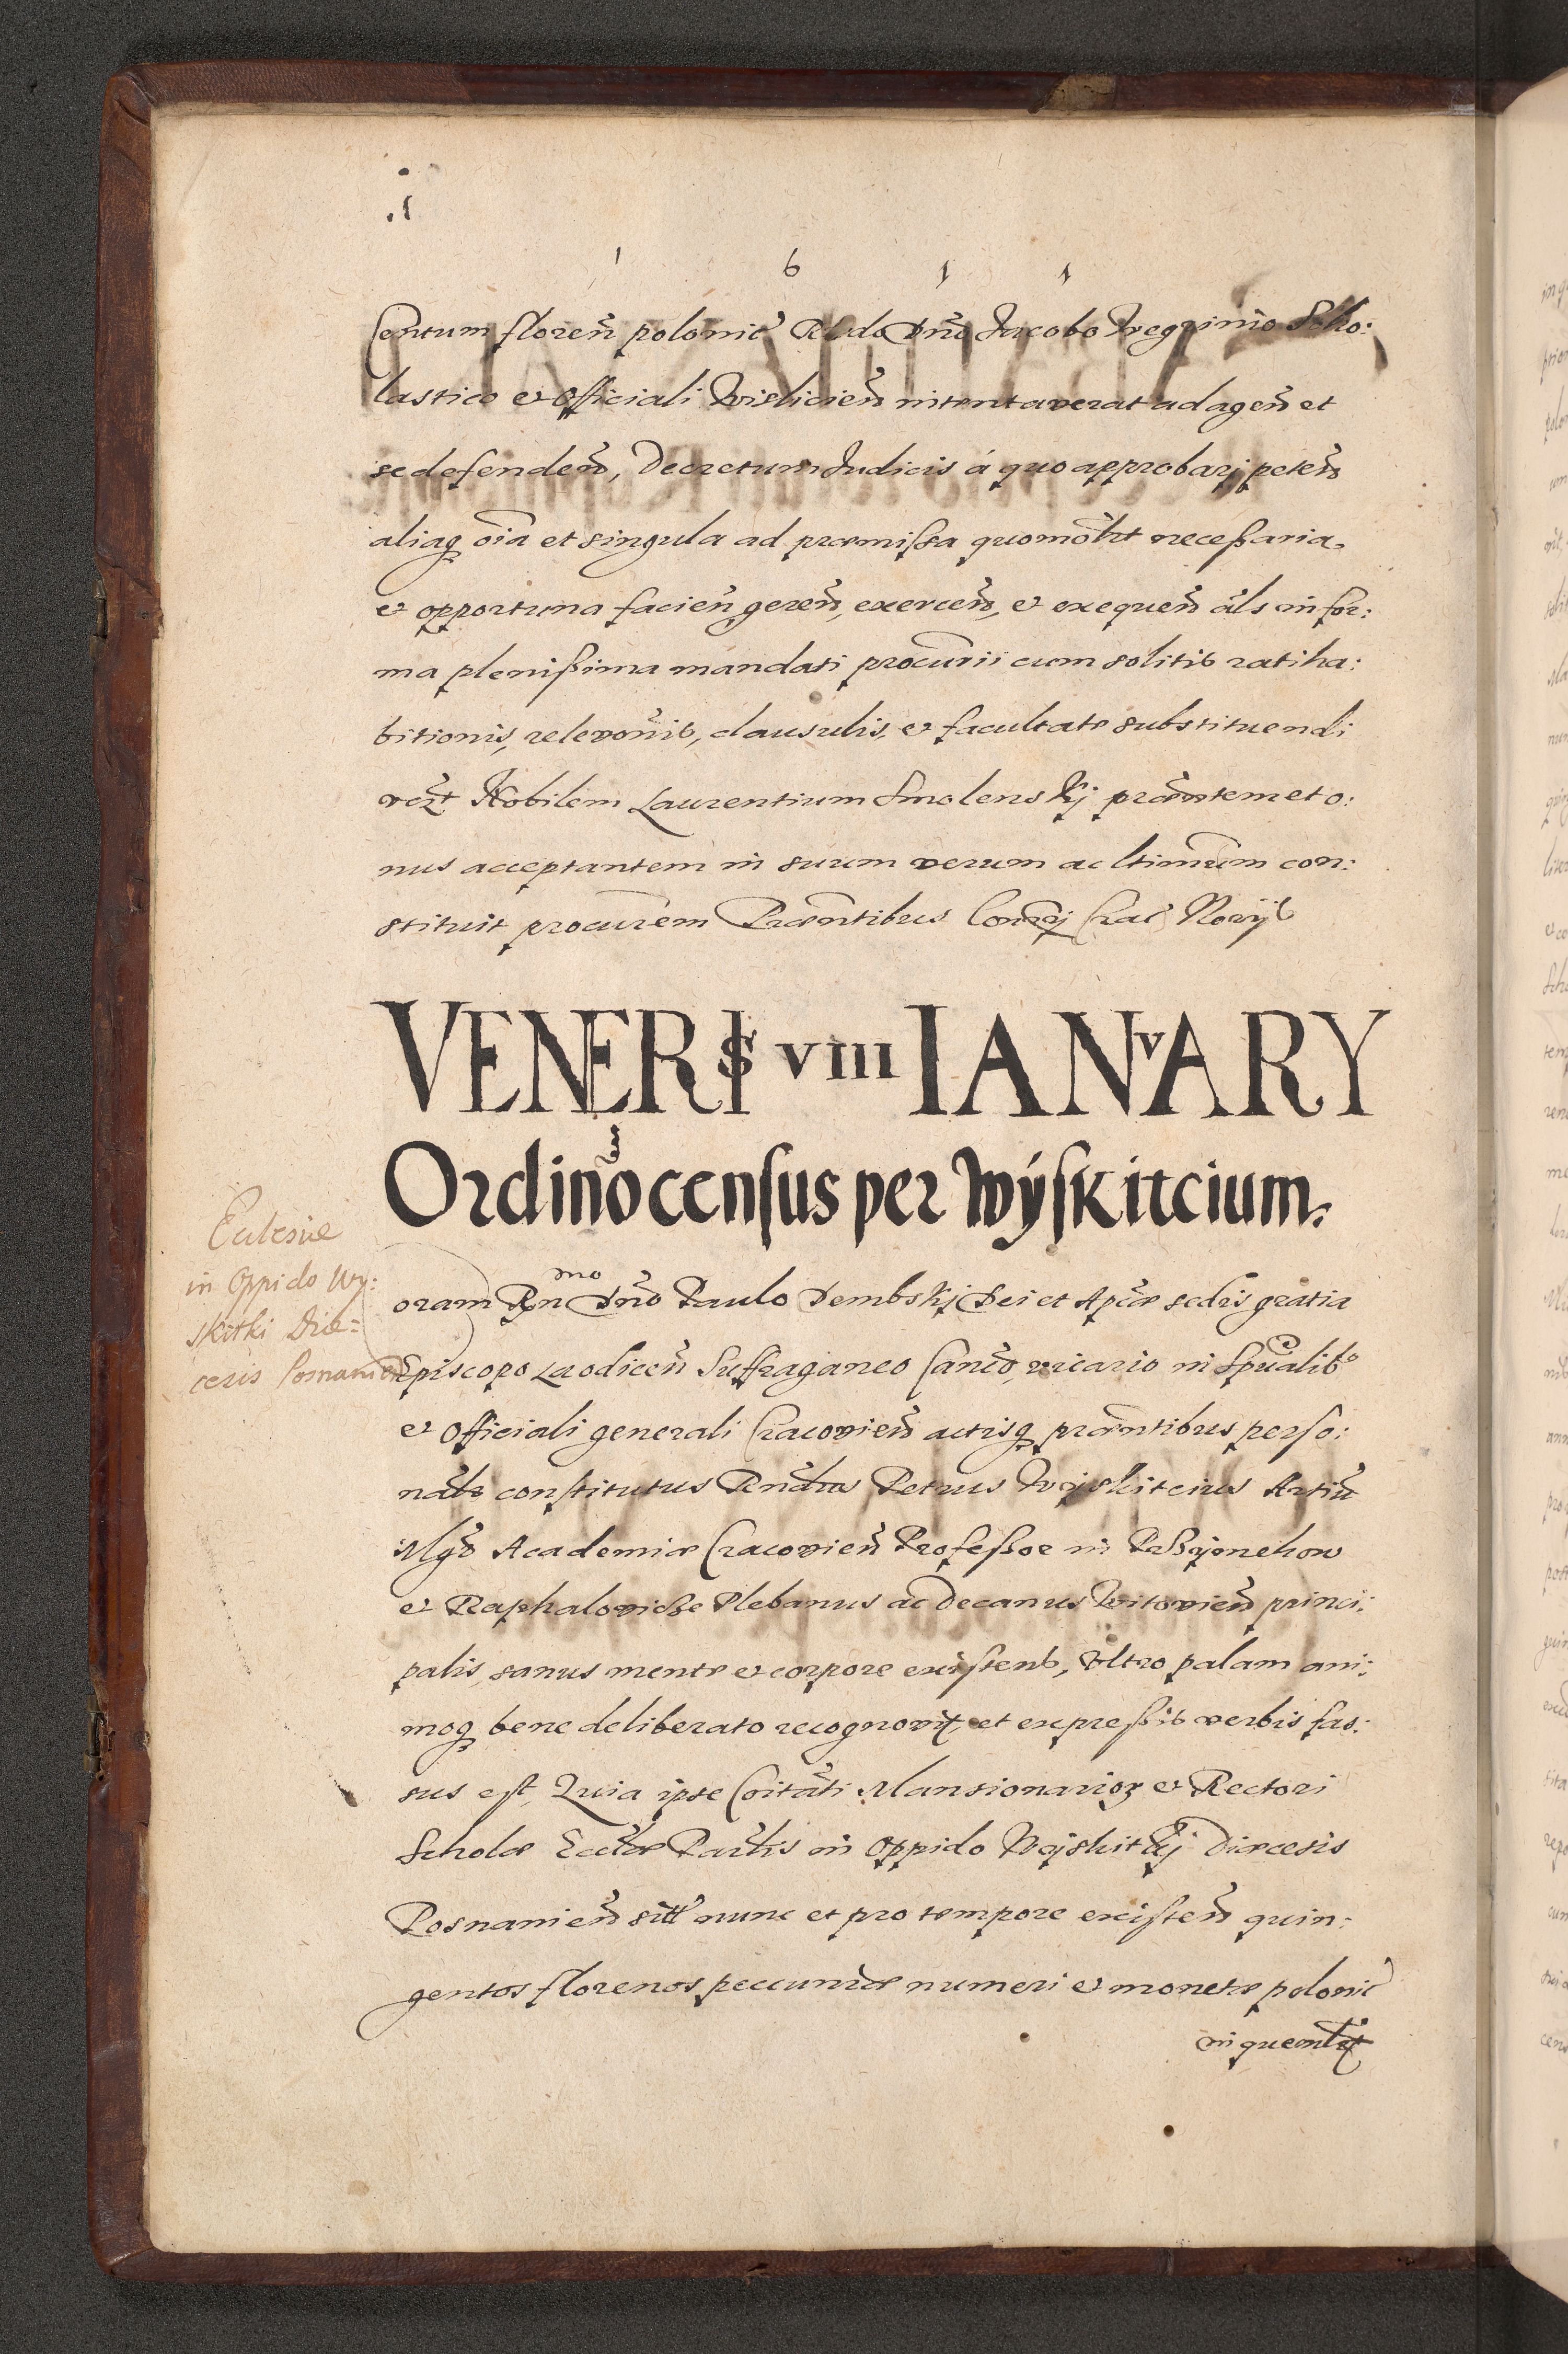 1 6 1 1
Centum floreñ polonic̃ Rdo Dño Jacobo Scho:
lastico et Officiali Wisliciẽn intentaverat ad ageñ et
se defendeñ, Decretum Judicis à quo approbarj peteñ
aliaq oĩa et singula ad præmißa quomõlt neceßaria
et opportuna facieñ gereñ, exerceñ, et exequeñ als in for:
ma plenißima mandati procurii cum solitis ratiha:
bitionis, relevoñis, clausulis, et facultate substituendi
Nobilem Laurentium Smolenskj præntem et o:
nus acceptantem in suum verum ac ltimum con:
stituit procurem Præntibus Crac̃ Norijs
VENERIS VIII IANVARY
Ordinõ census per Wyskitcium.
Eccłesiæ
in Oppido Wy:
skitki Diæ=
cesis Posnanieñ
oram Rn mo Dño Paulo Dembskj Dei et Aplicæ sedis gratia
Episcopo Laodiceñ Suffraganeo Canco, vicario in Spũalibs
et Officiali generali Cracovieñ actisq præntibus perso:
nalr constitutus Rndus Petrus Wyskitcius Artiũ
Mgr Academiæ Cracovieñ Profeßor in
et Raphalovicze Plebanus ac Decanus Witovieñ princi:
palis, sanus mente et corpore existens, Ultro palam ani:
moq bene deliberato recognovit, et expreßis verbis fas:
sus est, Quia ipse Cõitati Mansionarioꝝ et Rectori
Scholæ Ecclæ Parlis in Oppido Wyskitkj Diæcesis
Posnanieñ nunc et pro tempore existeñ quin:
gentos florenos pecuniæ numeri et monetæ polonic̃
in quemlt